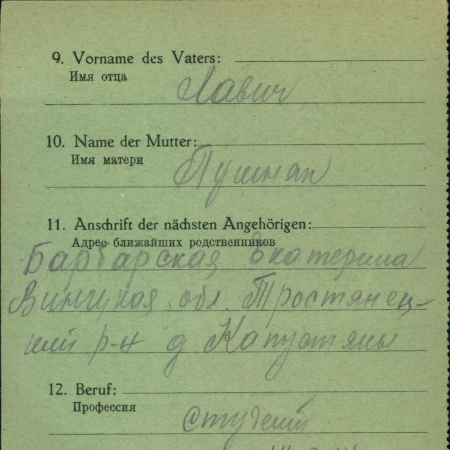 9. Vorname des Vaters:
Имя отца
Лавич
10. Name der Mutter:
Имя матери
Пушнап
11. Anschrift der nächsten Angehörigen:
Адрес ближайших родственников
Барбарская Екатерина
обл. Тростянец-
кий р-н д Капустяны
12. Beruf:
Профессия